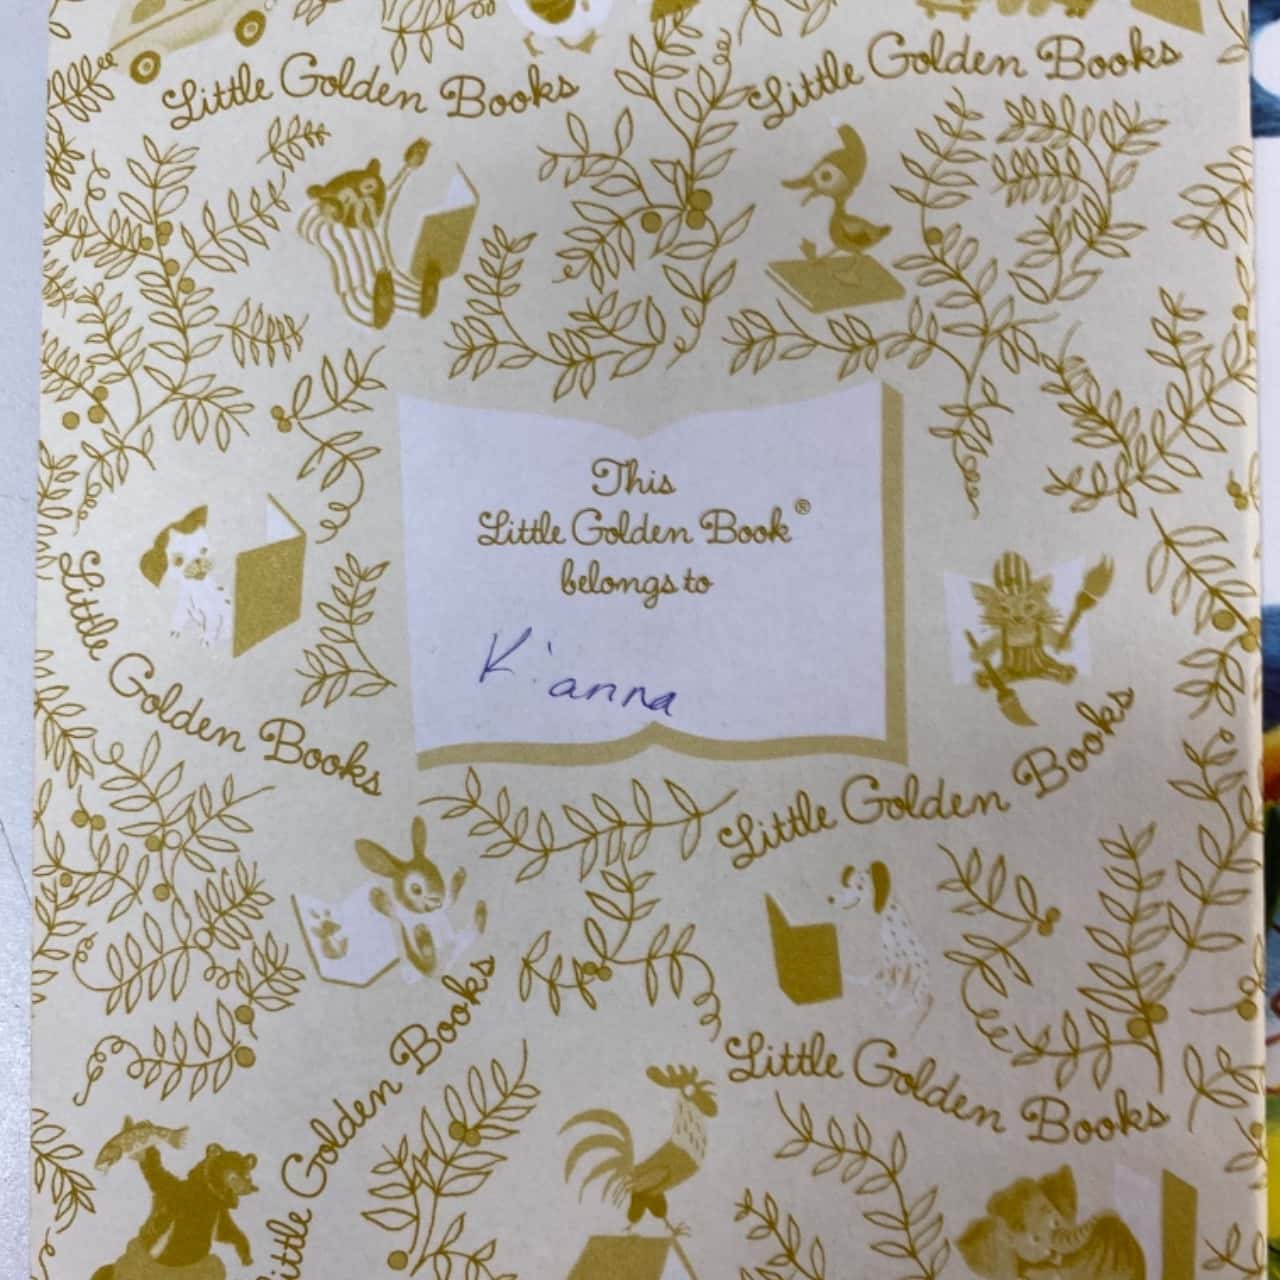 Little Golden Books
Little Golden Books
This
Little Golden Book®
belongs to
K'anna
Little Golden Books
Little Golden Books
Little Golden Books
Little Golden Books